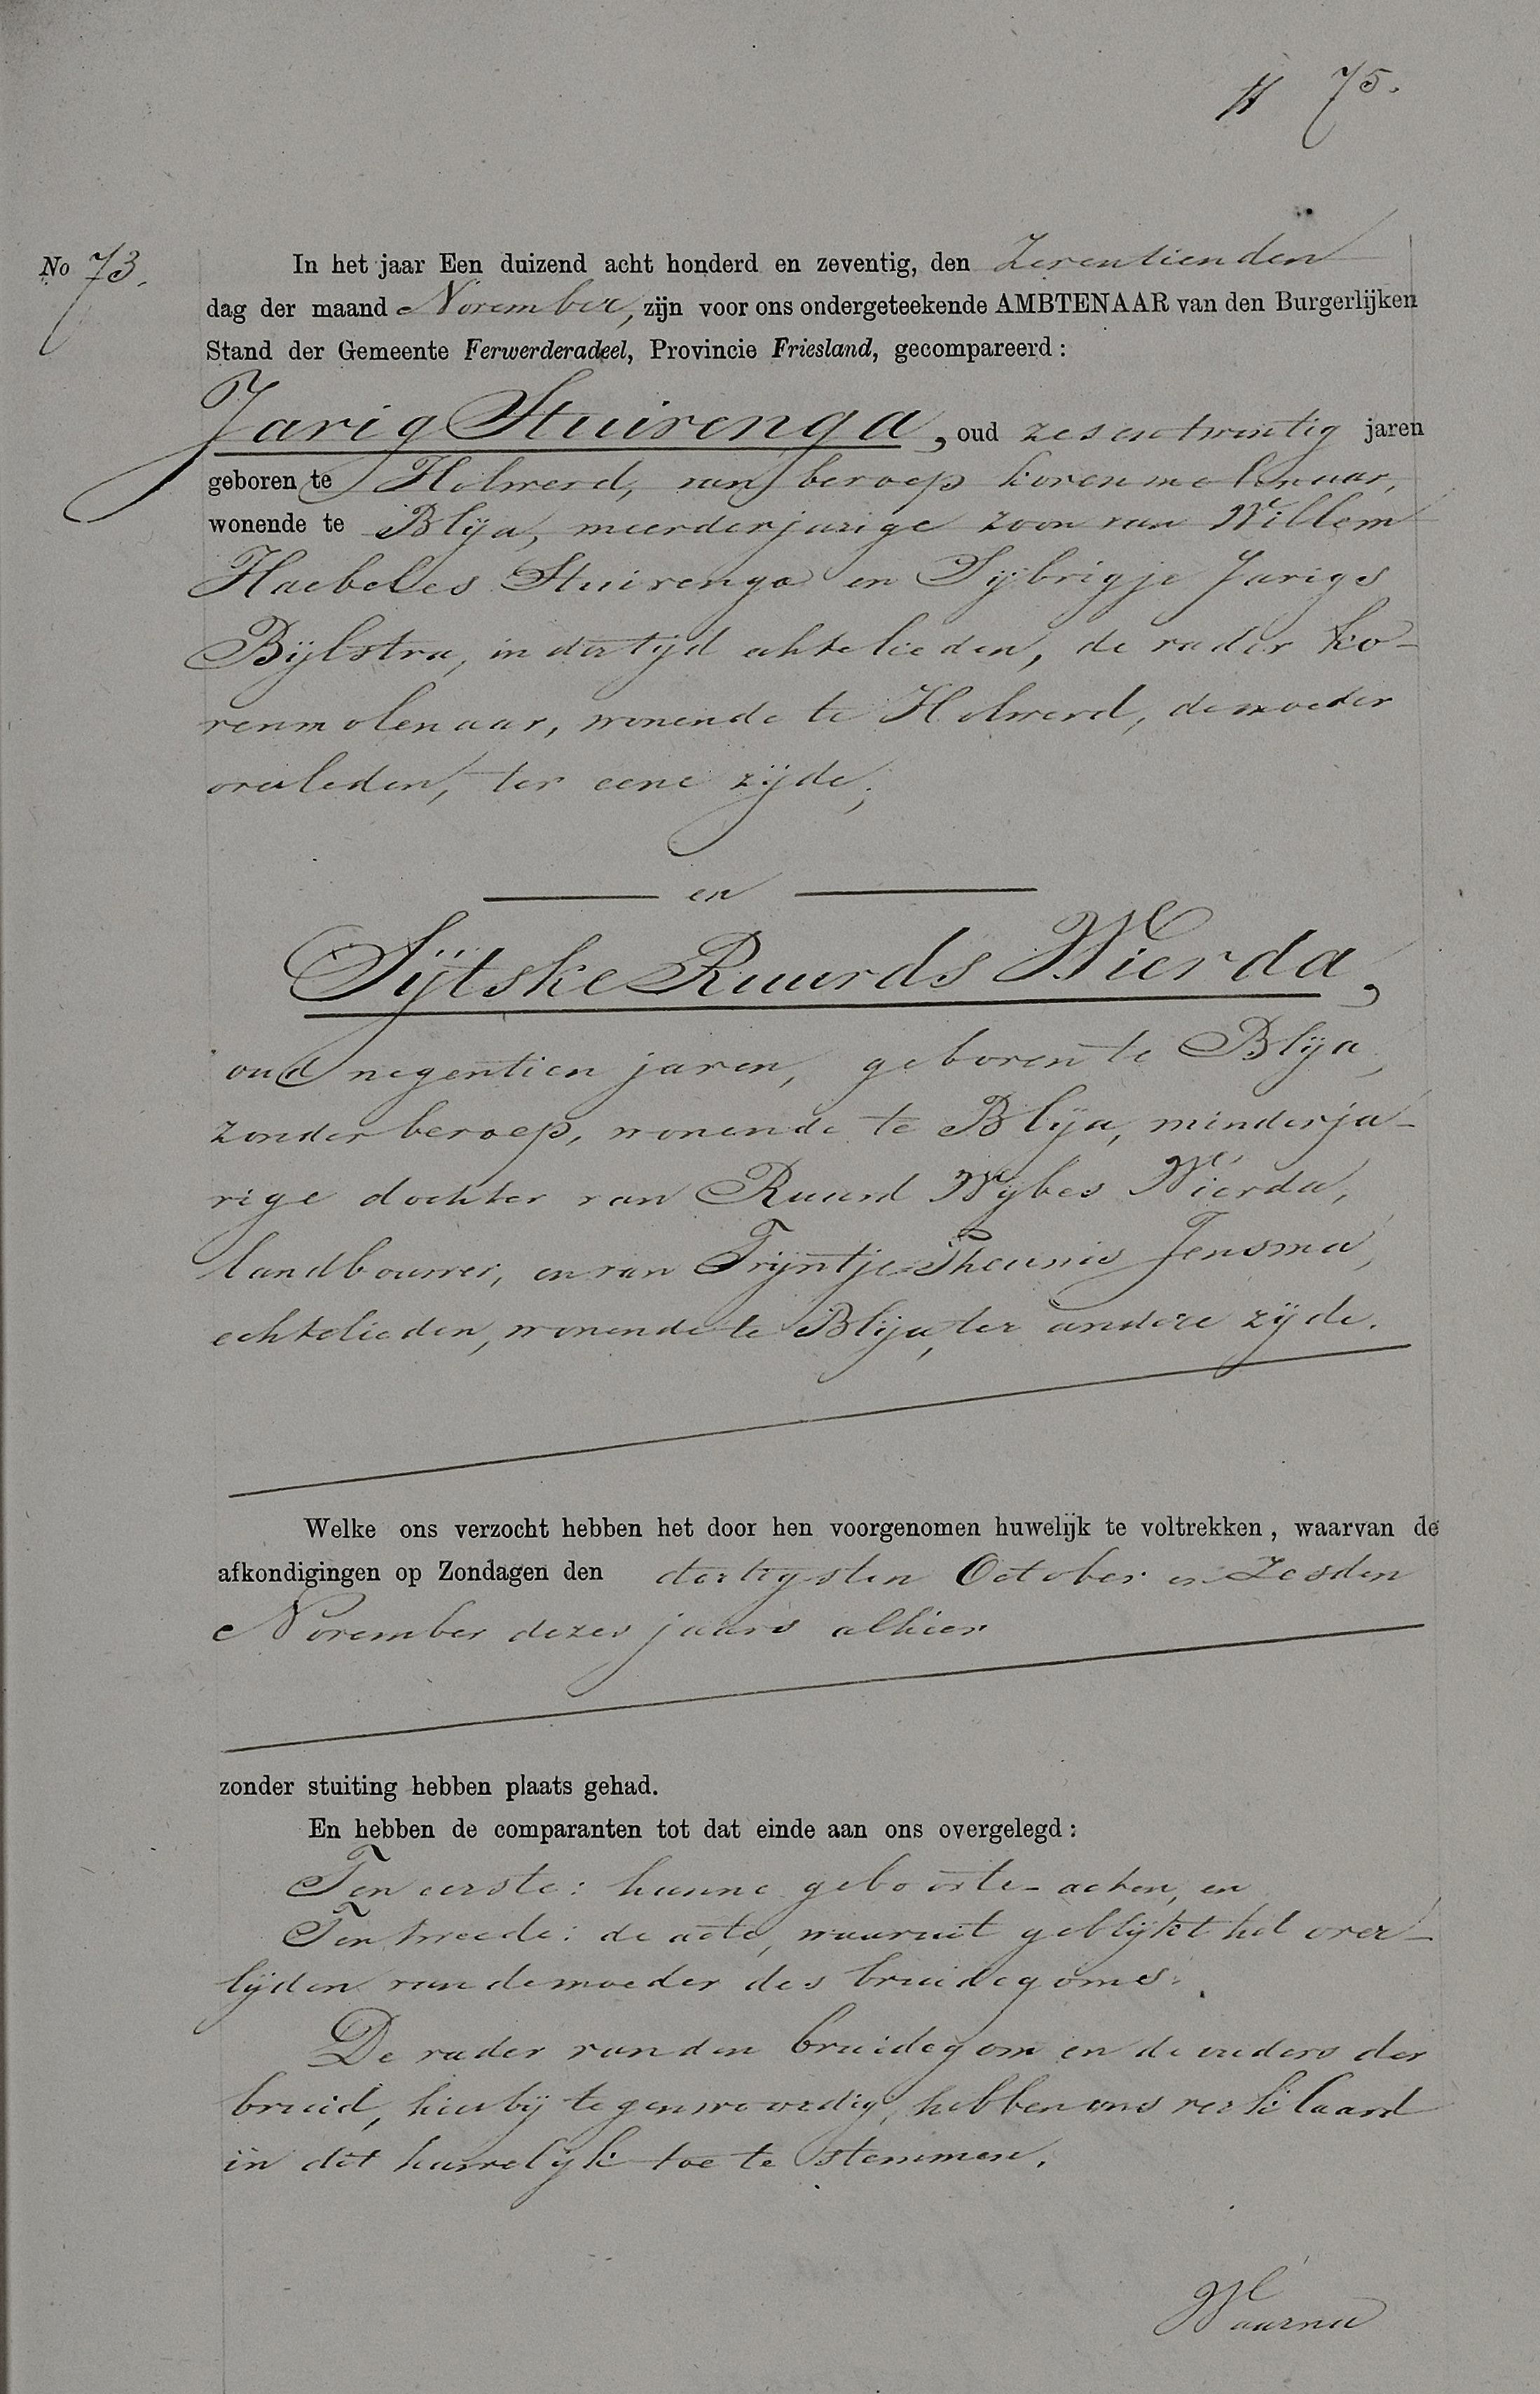 75.
No 73.
In het jaar Een duizend acht honderd en zeventig, den Zeventienden
dag der maand November, zijn voor ons ondergeteekende AMBTENAAR van den Burgerlijken
Stand der Gemeente Ferwerderadeel, Provincie Friesland, gecompareerd:
Jarig Stuivenga, oud zesentwintig jaren
geboren te Holwerd, van beroep korenmolenaar,
wonende te Blija, meerderjarige zoon van Willem
Haebeles Stuivenga en Sijbrigje Jarigs
Bijlstra, in der tijd echtelieden, de vader ko-
renmolenaar, wonende te Holwerd, de moeder
overleden, ter eene zijde;
en
Sijtske Ruurds Wierda,
oud negentien jaren, geboren te Blija,
zonder beroep, wonende te Blija, minderja-
rige dochter van Ruurd Wijbes Wierda,
landbouwer, en van Trijntje Theunis Jensma,
echtelieden, wonende te Blija, ter andere zijde.
Welke ons verzocht hebben het door hen voorgenomen huwelijk te voltrekken, waarvan de
afkondigingen op Zondagen den dertigsten October en Zesden
November dezes jaars alhier
zonder stuiting hebben plaats gehad.
En hebben de comparanten tot dat einde aan ons overgelegd:
Ten eerste: hunne geboorte-acten, en
Ten tweede: de acte, waaruit geblijkt het over-
lijden van de moeder des bruidegoms.
De vader van den bruidegom en de ouders der
bruid, hierbij tegenwoordig, hebben ons verklaard
in dit huwelijk toe te stemmen.
Waarna